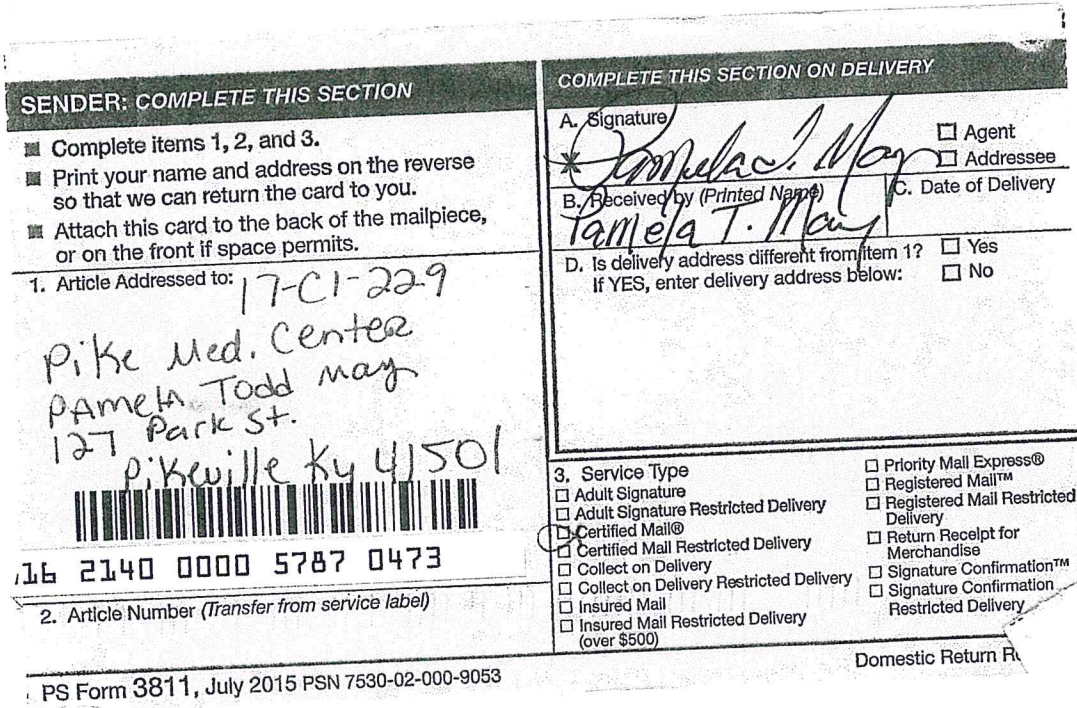 SENDER: COMPLETE THIS SECTION
Complete items 1, 2, and 3.
Print your name and address on the reverse
so that we can return the card to you.
Attach this card to the back of the mailpiece,
or on the front if space permits.
1. Article Addressed to: 17-CI-229
Pike Med. Center
PAMELA Todd May
127 Park St.
Pikeville Ky 41501
16 2140 0000 5787 0473
2. Article Number (Transfer from service label)
COMPLETE THIS SECTION ON DELIVERY
A. Signature
Pamela T. May
Agent
Addressee
B. Received by (Printed Name)
Pamela T. May
C. Date of Delivery
D. Is delivery address different from item 1?
If YES, enter delivery address below:
Yes
No
3. Service Type
Adult Signature
Adult Signature Restricted Delivery
Certified Mail®
Certified Mail Restricted Delivery
Collect on Delivery
Collect on Delivery Restricted Delivery
Insured Mail
Insured Mail Restricted Delivery
(over $500)
Priority Mail Express®
Registered Mail™
Registered Mail Restricted
Delivery
Return Receipt for
Merchandise
Signature Confirmation™
Signature Confirmation
Restricted Delivery
PS Form 3811, July 2015 PSN 7530-02-000-9053
Domestic Return